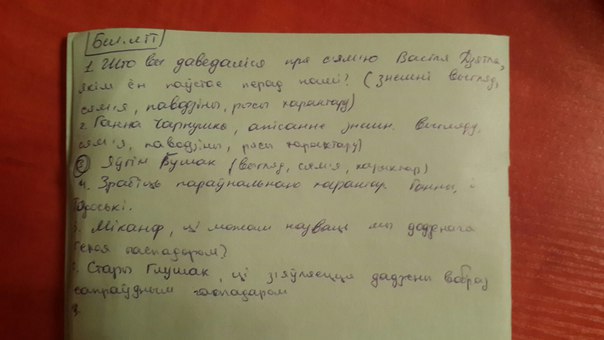 Бел.літ
1. Што вы даведаліся пра сям'ю Васіля Дзятла,
якім ён паўстае перад намі? (знешні выгляд,
сям'я, паводзіны, рысы характару)
2. Ганна Чарнушка, апісанне знешн. выгляду,
сям'я, паводзіны, рысы характару)
3 Яўхім Глушак (выгляд, сям'я, характар)
4. Зрабіць параўнальную характар. Ганны, і
Хадоські.
5. Міканор, ці можам назваць мы дадзенага
героя гаспадаром?
6. Стары Глушак, ці з'яўляецца дадзены вобраз
сапраўдным гаспадаром